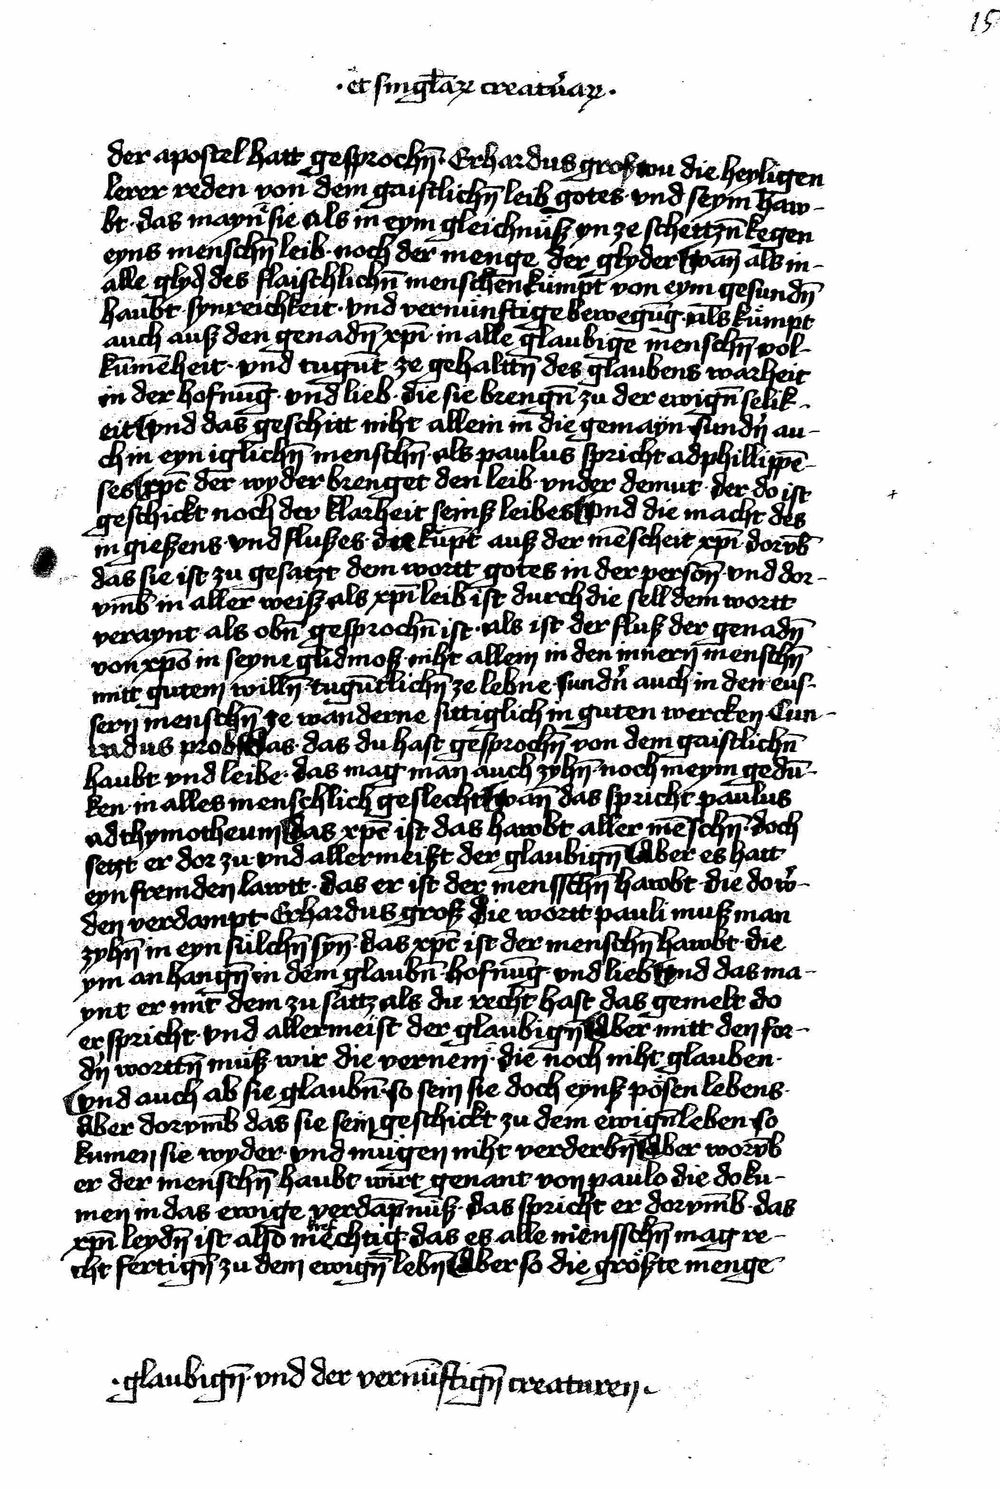 15
· et singlar̄ creatur̄ar̄ ·
der apostel hatt gesprochn̄ · Erhardus groß wu die heyligen
lerer reden von dem gaistlichn̄ leib gotes · vnd seym haw-
bt · das mayn̄ sie als in eym gleichnüß yn ze schettzn̄ kegen
eyns menschn̄ leib · noch der menge der glyder wan̄ als in-
alle glyd des flaischlichn̄ menschen kümpt von eym gesundn̄
haubt · synreichkeit · vnd vernünftige bewegūg · als kümpt
auch auß den genadn̄ xp̄i · in alle glaubige menschn̄ vol-
kūmēheit · vnd tugūt ze gehalttn̄ des glaubens warheit
in der hofnūg · vnd lieb · die sie brengn̄ zu der ewign̄ selik-
eit vnd das geschitt niht allein in die gemayn · sundn̄ au-
ch in eyn iglichn̄ menschn̄ · als paulus spricht ad phillippē-
ses xp̄c der wyder brenget den leib · vnder demut · der do ist
geschickt noch der klarheit seinß leibes vnd die macht des
in gießens · vnd flußes · die kūpt auß der mēscheit xp̄i · dorv̄b
das sie ist zu gesatzt dem wortt gotes in der person̄ · vnd dor-
vm̄b in aller weiß als xp̄i leib ist durch die sell dem wortt
veraynt als obn̄ gesprochn̄ ist · als ist der fluß der genadn̄
von xp̄o in seyne glidmoß · niht allein in den innern menschn̄
mitt gutem willn̄ · tugūtlichn̄ ze lebne sundn̄ auch in den eus-
sern menschn̄ ze wanderne sittiglich in guten wercken · Cun-
radus probst das · das du hast gesprochn̄ von dem gaistlichn̄
haubt vnd leibe · das mag man auch zyhn̄ · noch meym gedū-
ken · in alles menschlich geslecht wan̄ das spricht paulus
ad thymotheum das xp̄c ist das hawbt aller mēschn̄ · doch
setzt er dor zu · vnd allermeißt der glaubign̄ Aber es hatt
eyn fremden lawtt · das er ist der mensschn̄ hawbt · die do w̄-
den verdampt · Erhardus groß die wortt pauli muß man
zyhn̄ in eyn sülchn̄ syn̄ · das xp̄c ist der menschn̄ hawbt · die
ym an hangn̄ in dem glaubn̄ · hofnūg · vnd lieb vnd das ma-
ynt er mit dem zu sattz als du recht hast das gemelt do
er spricht · vnd allermeist der glaubign̄ Aber mitt den for-
dn̄ worttn̄ müß wir die vernem · die noch niht glauben ·
vnd auch ab sie glaubn̄ · so sein sie doch eynß pösen lebens ·
Aber dorvm̄b das sie sein geschickt zu dem ewign̄ leben · so
kumen sie wyder · vnd mügen niht verderbn̄ Aber worv̄b
er der menschn̄ haubt wirt genant von paulo die do ku-
men in das ewige verdāpnüß · das spricht er dorvm̄b · das
xp̄i leydn̄ ist also mechtig · das es alle mensschn̄ mag re-
cht fertign̄ zu dem ewign̄ lebn̄ Aber so die größte menge
· glaubign̄ · vnd der vernūftign̄ creaturen ·